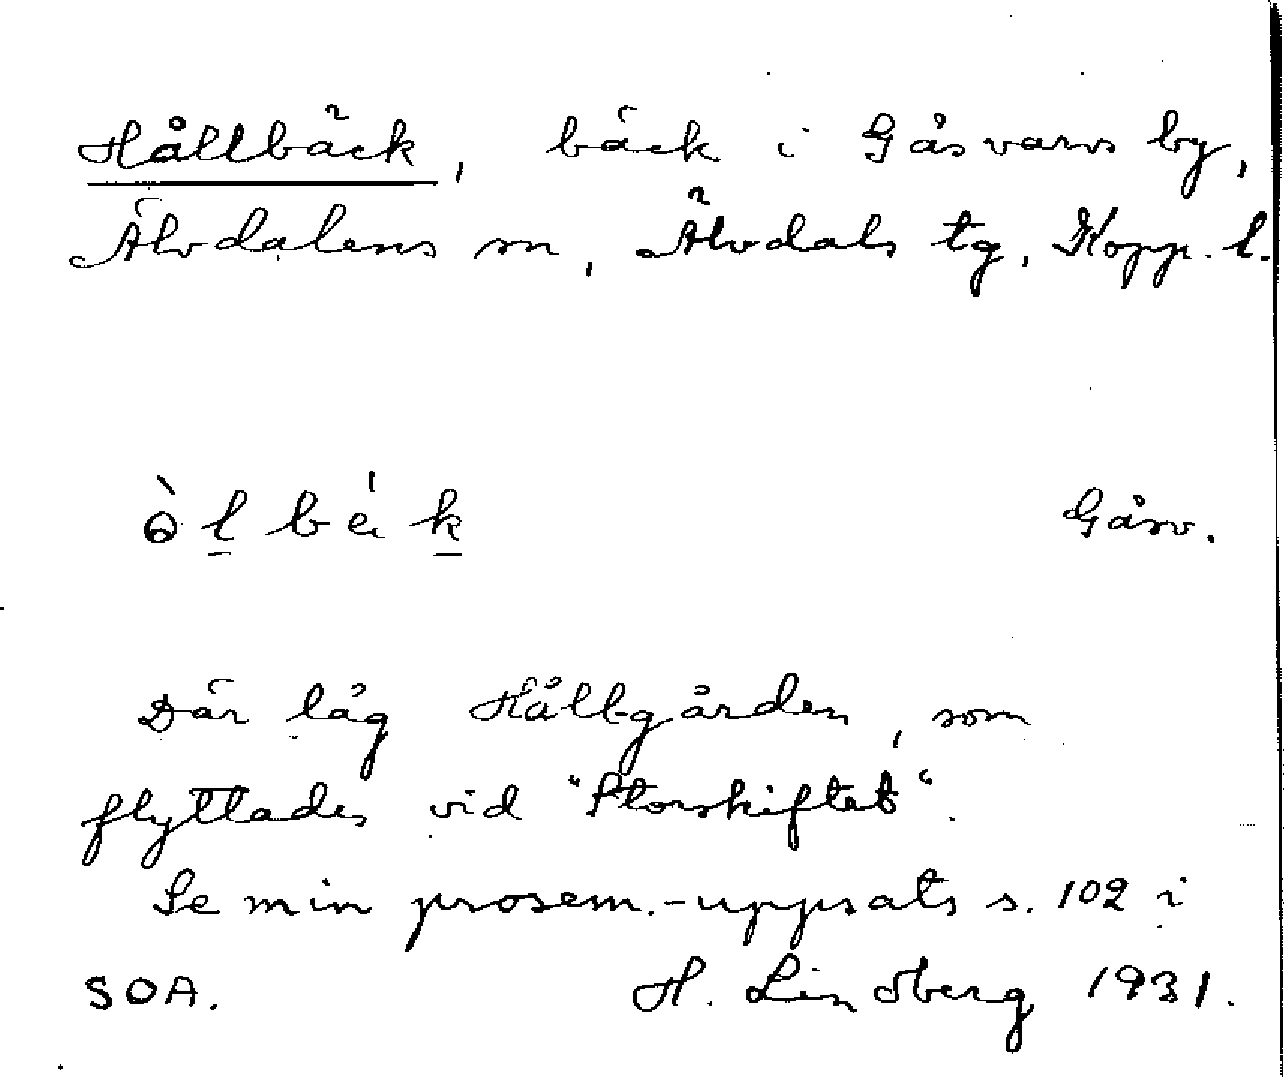 Hållbäck, bäck i Gåsvarvs by,
Älvdalens sn, Älvdals tg, Kopp. l.
Gåsv.
Där låg Hållgården, som
flyttades vid "Storskiftet".
Se min prosem.-uppsats s. 102 i
SOA. H. Lindberg 1931.